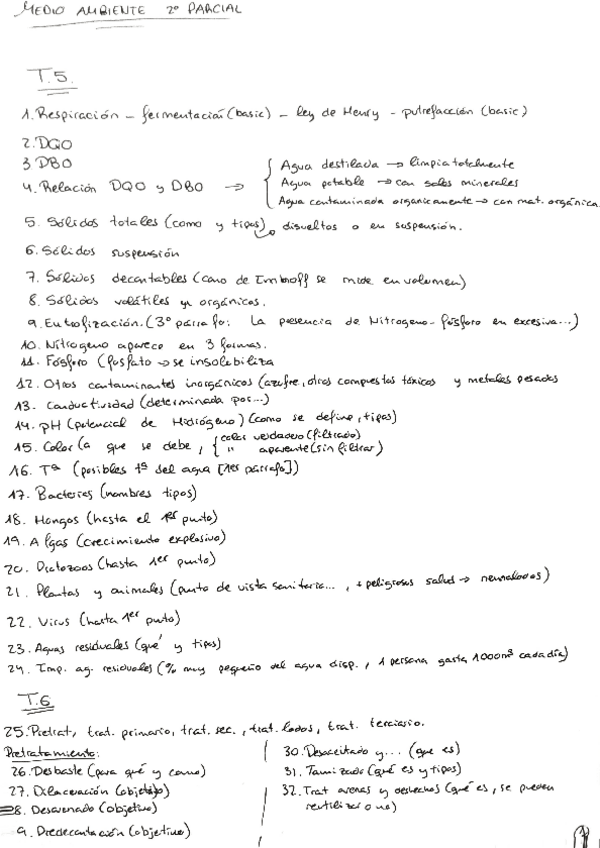 MEDIO AMBIENTE 2º PARCIAL
T.5.
1. Respiración – fermentación (basic) – ley de Henry – putrefacción (basic)
2. DQO
3 DBO
4. Relación DQO y DBO → { Agua destilada → limpia totalmente
Agua potable → con sales minerales
Agua contaminada organicamente → con mat. orgánica.
5. Sólidos totales (como y tipos) → disueltos o en suspensión.
6. Sólidos suspensión
7. Sólidos decantables (cono de Immhoff se mide en volumen)
8. Sólidos volátiles y orgánicos.
9. Eutrofización. (3º párrafo: La presencia de Nitrogeno-fósforo en excesiva...)
10. Nitrogeno aparece en 3 formas.
11. Fósforo (fosfato → se insolubiliza
12. Otros contaminantes inorgánicos (azufre, otros compuestos tóxicos y metales pesados
13. Conductividad (determinada por...)
14. pH (potencial de Hidrógeno) (como se define, tipos)
15. Color (a que se debe, { color verdadero (filtrado)
" aparente (sin filtrar)
16. Tª (posibles tª del agua [1er párrafo])
17. Bacterias (nombres tipos)
18. Hongos (hasta el 1er punto)
19. Algas (crecimiento explosivo)
20. Protozoos (hasta 1er punto)
21. Plantas y animales (punto de vista sanitario..., + peligrosos salud → nematodos)
22. Virus (hasta 1er punto)
23. Aguas residuales (qué y tipos)
24. Imp. ag. residuales (% muy pequeño del agua disp., 1 persona gasta 1000m³ cada día)
T.6
25. Pretrat, trat. primario, trat. sec., trat. lodos, trat. terciario.
Pretratamiento:
26. Desbaste (para qué y como)
27. Dilaceración (objetivo)
28. Desarenado (objetivo)
9. Predecantación (objetivo)
30. Desaceitado y... (que es)
31. Tamizado (qué es y tipos)
32. Trat arenas y deshechos (qué es, se pueden
reutilizar o no)
1